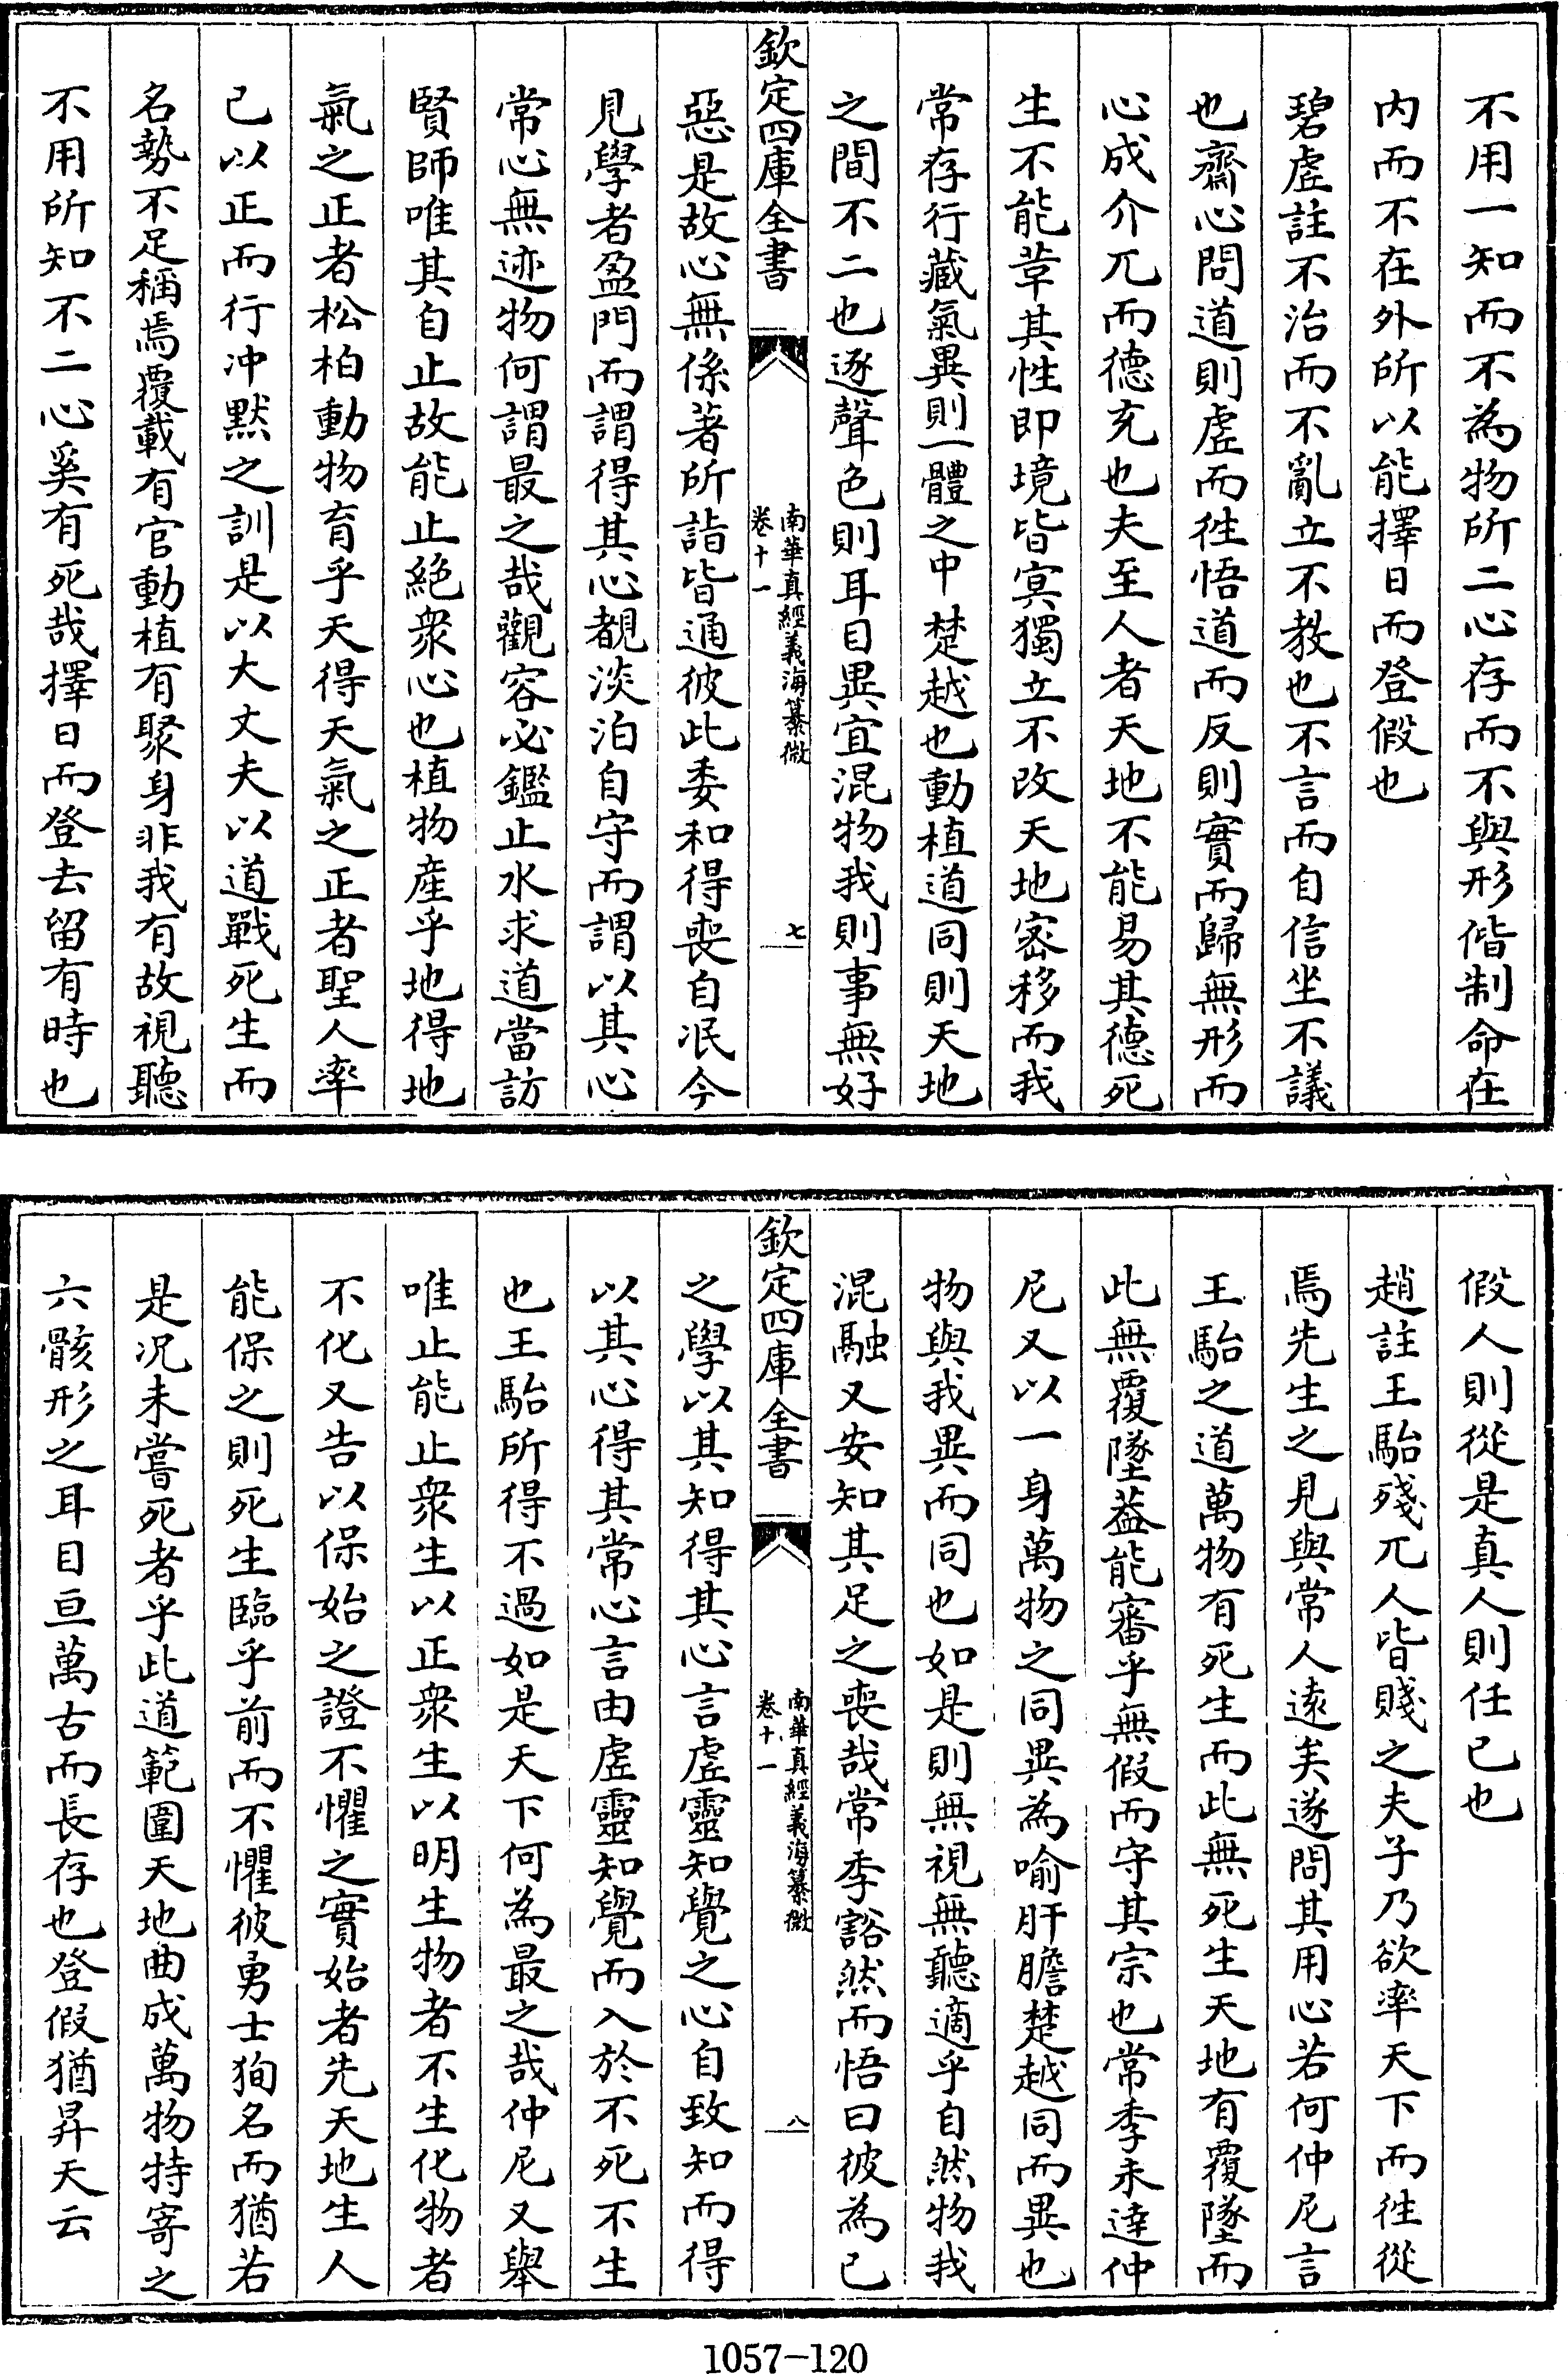 不用一知而不為物所二心存而不與形偕制命在
内而不在外所以能擇日而登假也
碧虛註不治而不亂立不教也不言而自信坐不議
也齋心問道則虛而徃悟道而反則實而歸無形而
心成介兀而德充也夫至人者天地不能易其德死
生不能革其性即境皆㝠獨立不改天地宻移而我
常存行藏氣異則一體之中楚越也動植道同則天地
之間不二也逐聲色則耳目異宜混物我則事無好
欽定四庫全書
南華真經義海纂微
卷十一
七
惡是故心無係著所詣皆通彼此委和得喪自泯今
見學者盈門而謂得其心覩淡泊自守而謂以其心
常心無迹物何謂最之哉觀容必鑑止水求道當訪
賢師唯其自止故能止絶衆心也植物產乎地得地
氣之正者松柏動物育乎天得天氣之正者聖人率
已以正而行冲默之訓是以大丈夫以道戰死生而
名勢不足稱焉覆載有官動植有聚身非我有故視聽
不用所知不二心奚有死哉擇日而登去留有時也
假人則從是真人則任已也
趙註王駘殘兀人皆賤之夫子乃欲率天下而徃從
焉先生之見與常人遠矣遂問其用心若何仲尼言
王駘之道萬物有死生而此無死生天地有覆墜而
此無覆墜葢能審乎無假而守其宗也常季未達仲
尼又以一身萬物之同異為喻肝膽楚越同而異也
物與我異而同也如是則無視無聽適乎自然物我
混融又安知其足之喪哉常季豁然而悟曰彼為已
欽定四庫全書
南華真經義海纂微
卷十一
八
之學以其知得其心言虛靈知覺之心自致知而得
以其心得其常心言由虛靈知覺而入於不死不生
也王駘所得不過如是天下何為最之哉仲尼又舉
唯止能止衆生以正衆生以明生物者不生化物者
不化又告以保始之證不懼之實始者先天地生人
能保之則死生臨乎前而不懼彼勇士狥名而猶若
是况未嘗死者乎此道範圍天地曲成萬物特寄之
六骸形之耳目亘萬古而長存也登假猶昇天云
1057-120